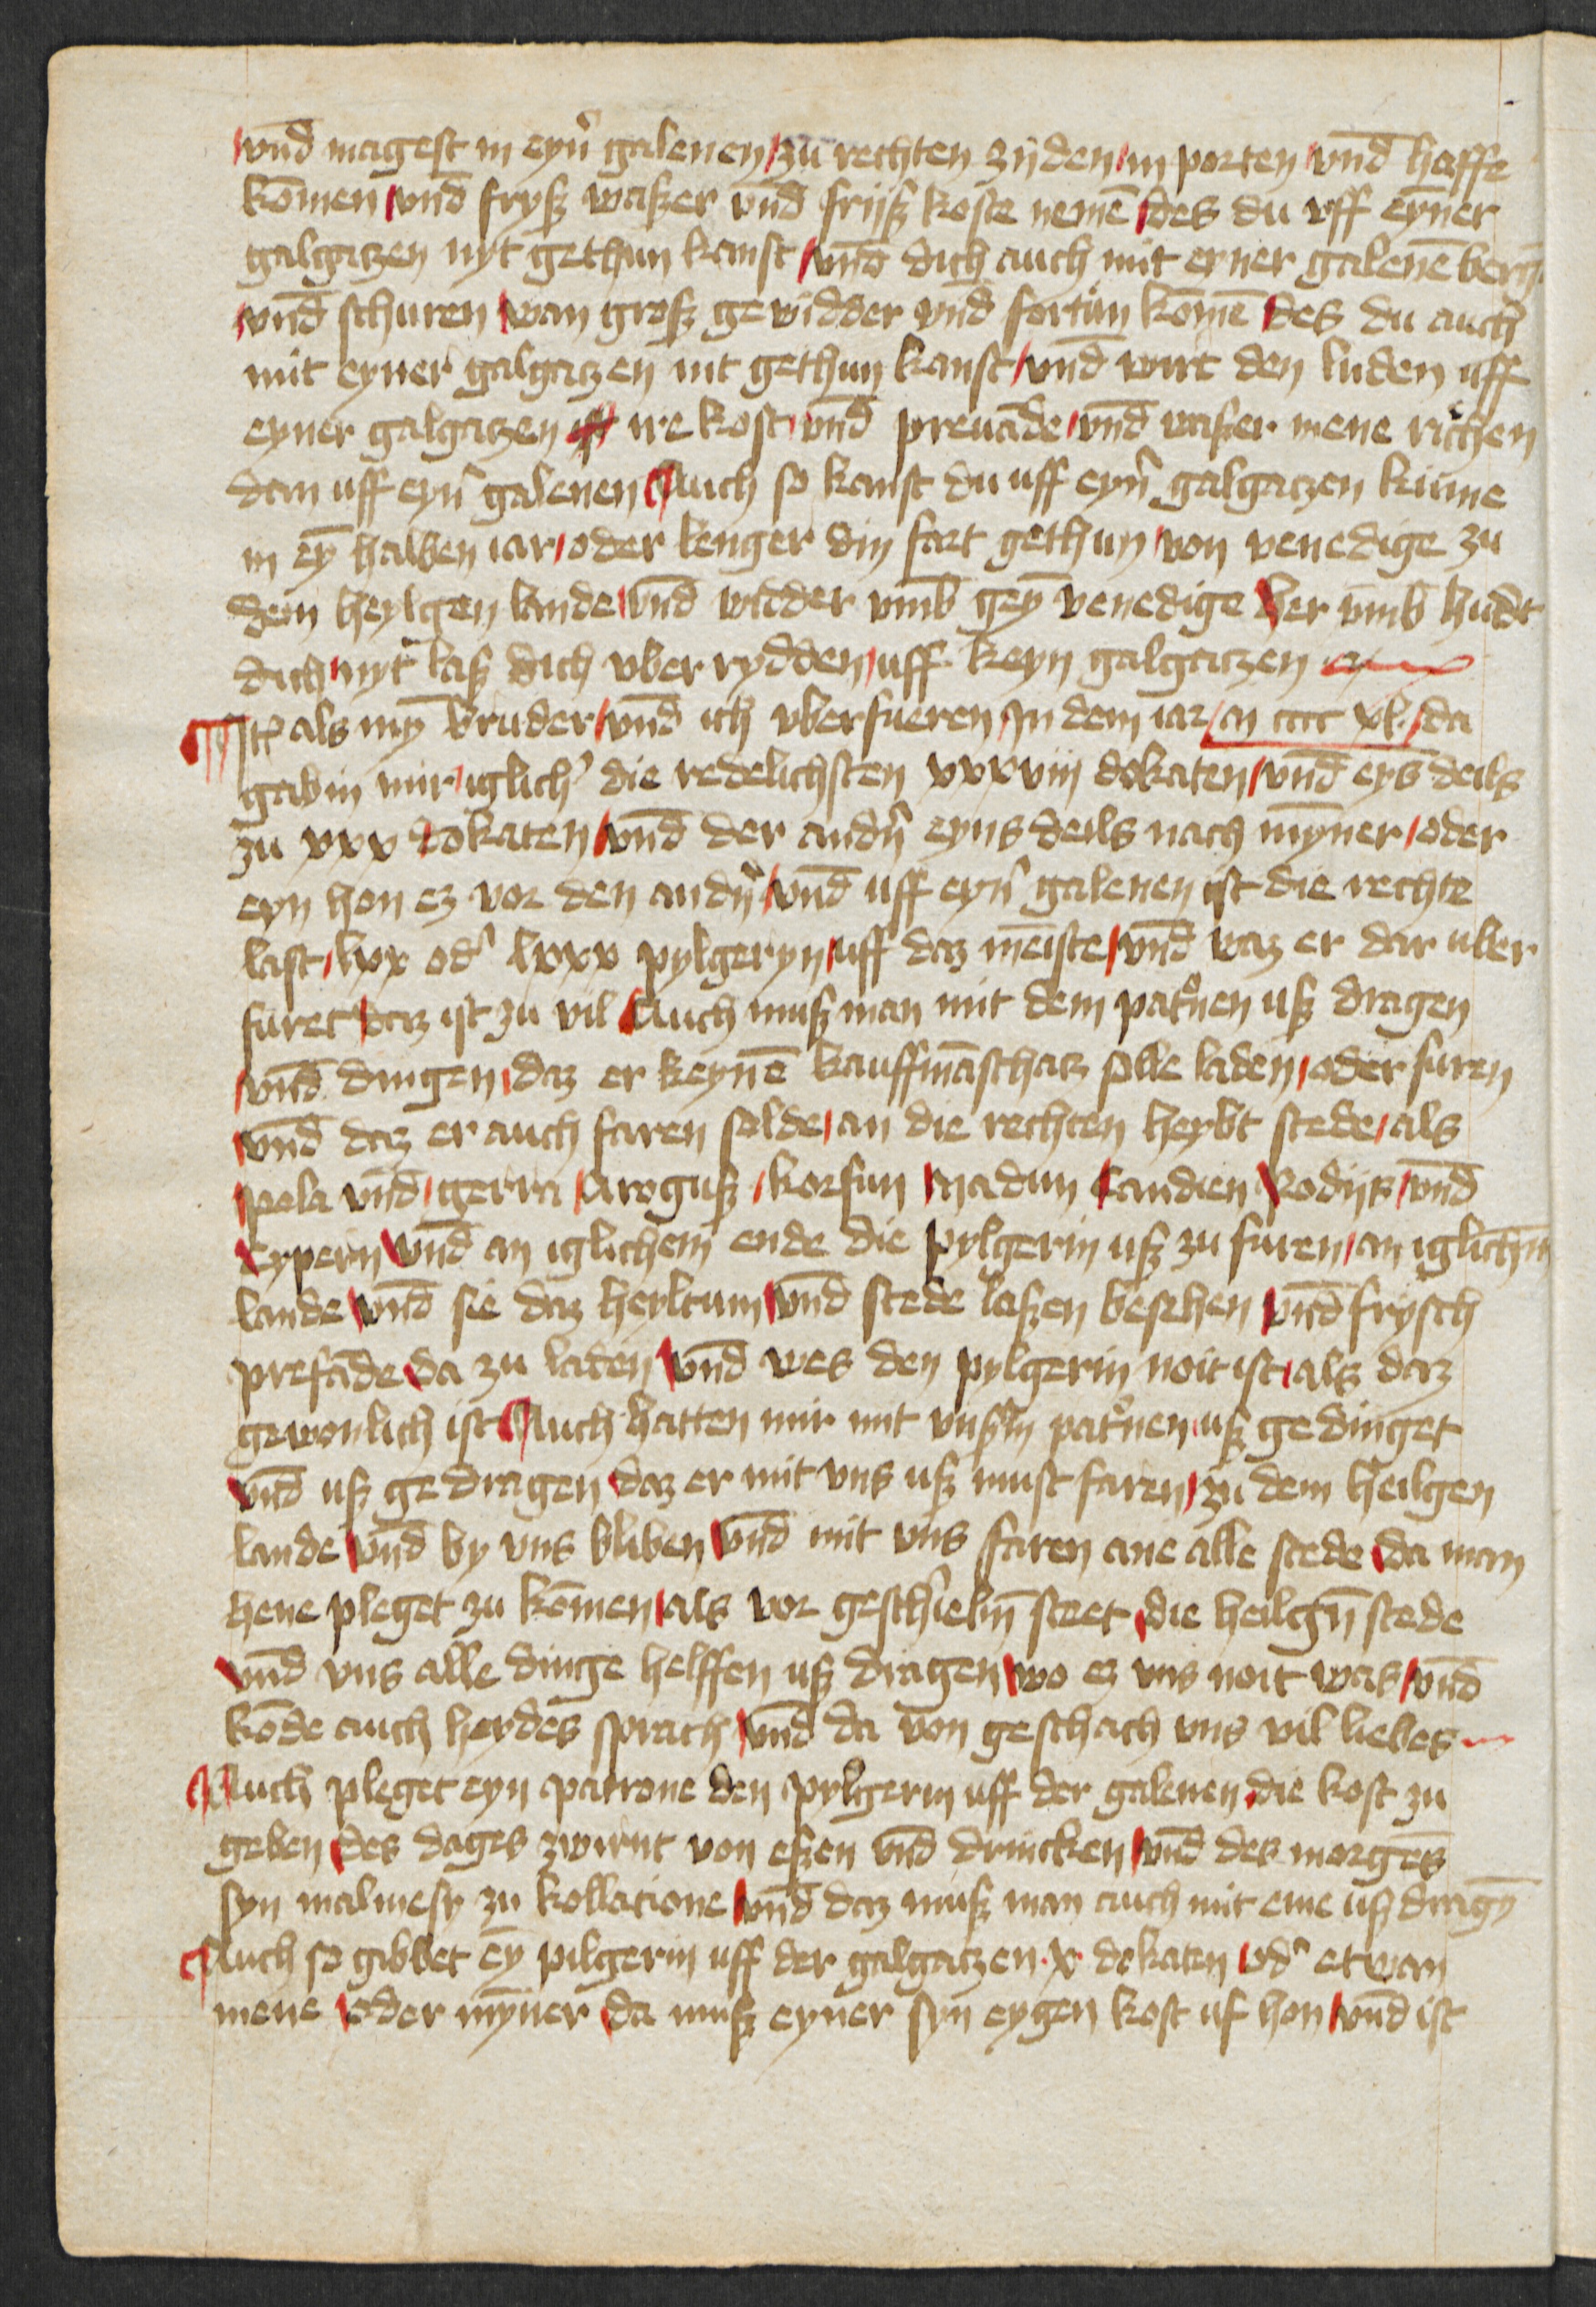 vnd magest in eyner galenen zu rechten zijden in porten vnd haffe
komen vnd frysz waszer vnd frijsz koste nemē des du vff eyner
galgatzen nyt gethun kanst vnd dich auch mit eyner galenē berg
vnd schuren wan grosz gewidder vnd fortun komē des du auch
mit eyner galgatzen nit gethun kanst vnd wirt den luden uff
eyner galgatzen ire kost vnd prevāde vnd waszer mene richen
dan uff eyn̄ galenen Auch so kanst du uff eyn̄ galgatzen kume
in eȳ halben iar oder lenger din fart gethun von venedige zu
dem heylgen lande vnd widder vmb geȳ venedige Her vmb hudt
dich nyt lasz dich vber rydden uff keyn galgatzen
Itē als mȳ bruder vnd ich vber fueren In dem iar m cccc xl da
gabin mir iglich̄ die redelichsten xxxviij dokaten vnd eyns deils
zu xxx dokaten vnd der andn̄ eyns deils nach mȳner oder
eyn hon ez vor den andn̄ vnd uff eyn̄ galenen ist die rechte
last lxx od̄ lxxx pylgeryn uff daz meiste vnd waz er dar uber
furet daz ist zu vil Auch musz man mit dem patōnen usz dragen
vnd dingen daz er keynē kauffmāschatz solle laden oder furen
vnd daz er auch faren solde an die rechten heybt stede als
pola vnd gerra Arogusz korfun Madun Candien Rodijs vnd
Cypern vnd an iglichem ende die pylgerin usz zu furen an iglichm̄
lande vnd sie daz heyltum vnd stede laszen besehen vnd frysch
prefāde da zu laden vnd wes den pylgerin noit ist als daz
gewonlich ist Auch hatten mir mit vnszm̄ patōnen usz gedinget
vnd usz gedragen daz er mit vns usz must faren zu dem heilgen
lande vnd by vns bliben vnd mit vns faren ane alle stede da man
hene pleget zu komen als vor geschriebn̄ steet die heilgn̄ stede
vnd vns alle dinge helffen usz dragen wo ez vns noit was vnd
kōde auch heydes sprach vnd da von geschach vns vil liebes
Auch pleget eyn patrone den pylgerin uff der galenen die kost zu
geben des dages zwirnt von eszen vnd drincken vnd des morgēs
syn malmesy zu kollatione vnd daz musz man auch mit eme usz dragē
Auch so gibbet eȳ pilgerin uff der galgatzen x dokaten od̄ etwan
mene oder mȳner da musz eyner syn eygen kost uf hon vnd ist